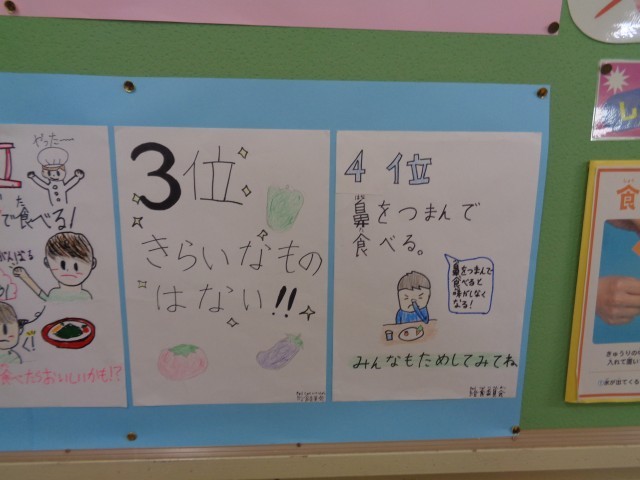 やったー
で食べる!
がんばる
食べたらおいしいかも!?
3位
きらいなもの
はない!!
4位
鼻をつまんで
食べる。
鼻をつまんで
食べると
味がしなく
なる!
みんなもためしてみてね
食
きゅうりの
入れて置い